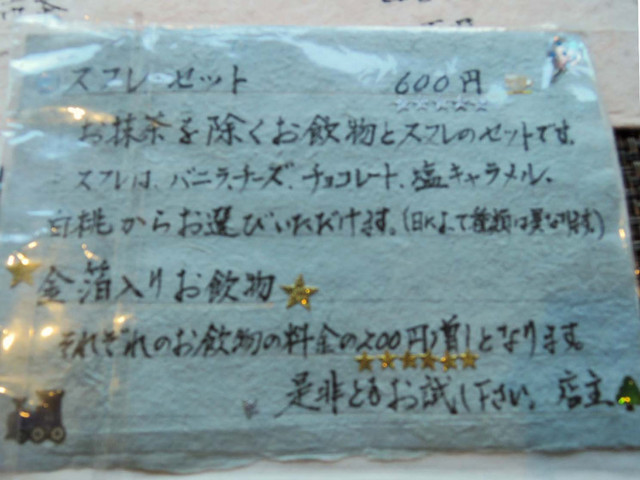 スフレセット 600円
お抹茶を除くお飲物とスフレのセットです。
スフレは、バニラ、チーズ、チョコレート、塩キャラメル、
白桃からお選びいただけます。(日によって種類は異なります)
金箔入りお飲物
それぞれのお飲物の料金の200円増しとなります。
是非ともお試し下さい。店主